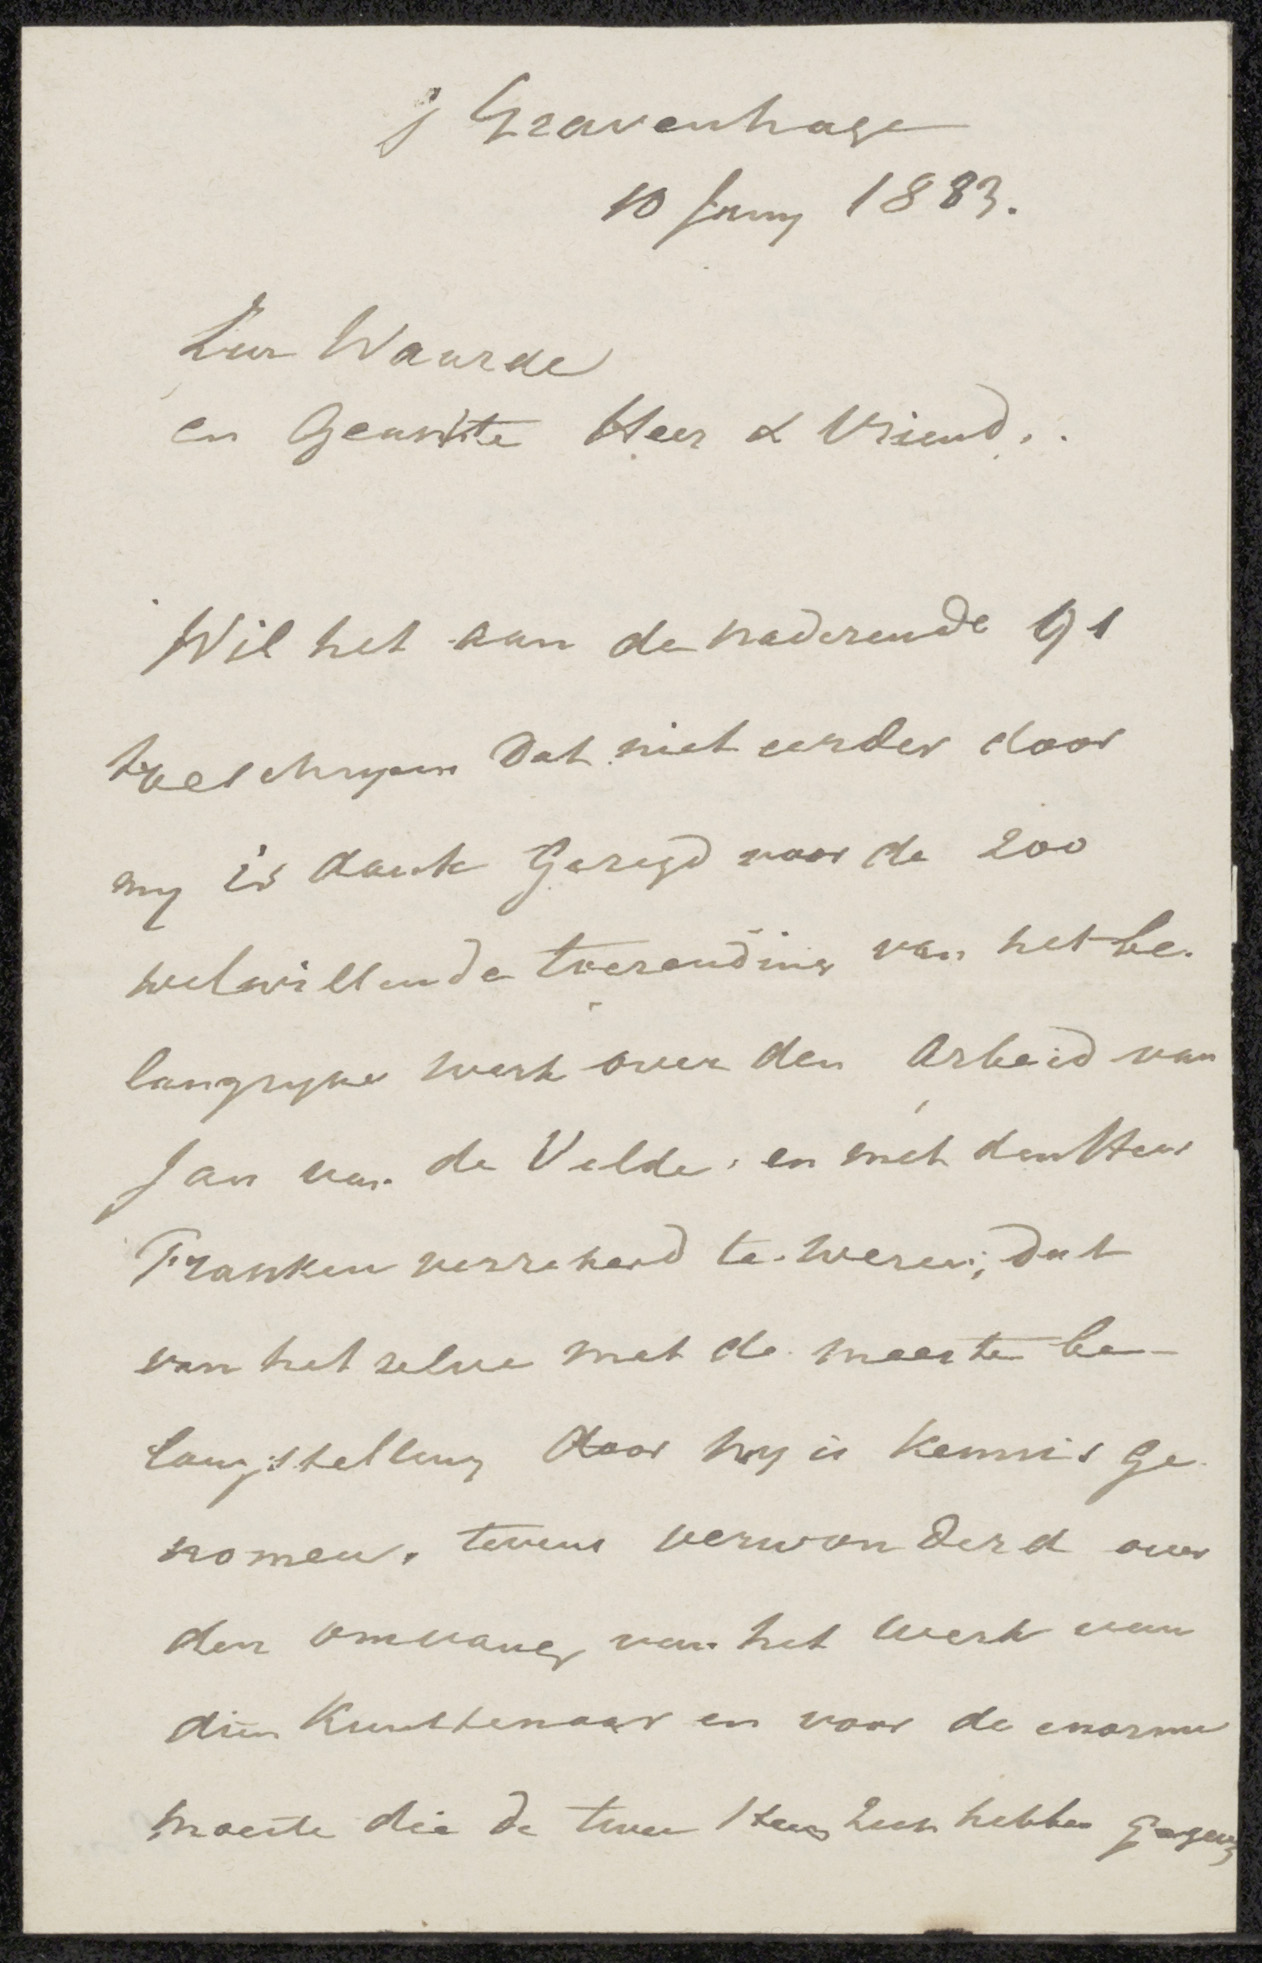 s Gravenhage
10 Juny 1883.
Zeer Waarde
en Geachte Heer & Vriend.
Wil het aan de naderende 91
toeschryven dat niet eerder door
my is dank gezegd voor de zoo
welwillende toezending van het be-
langryke werk over den Arbeid van
Jan van de Velde, en met den Heer
Franken verzekerd te wezen, dat
van het zelve met de meeste be-
langstelling door my is kennis ge-
nomen, tevens verwonderd over
den omvang van het werk van
dien Kunstenaar en voor de enorme
moeite die de twee Heeren zich hebben gegeven